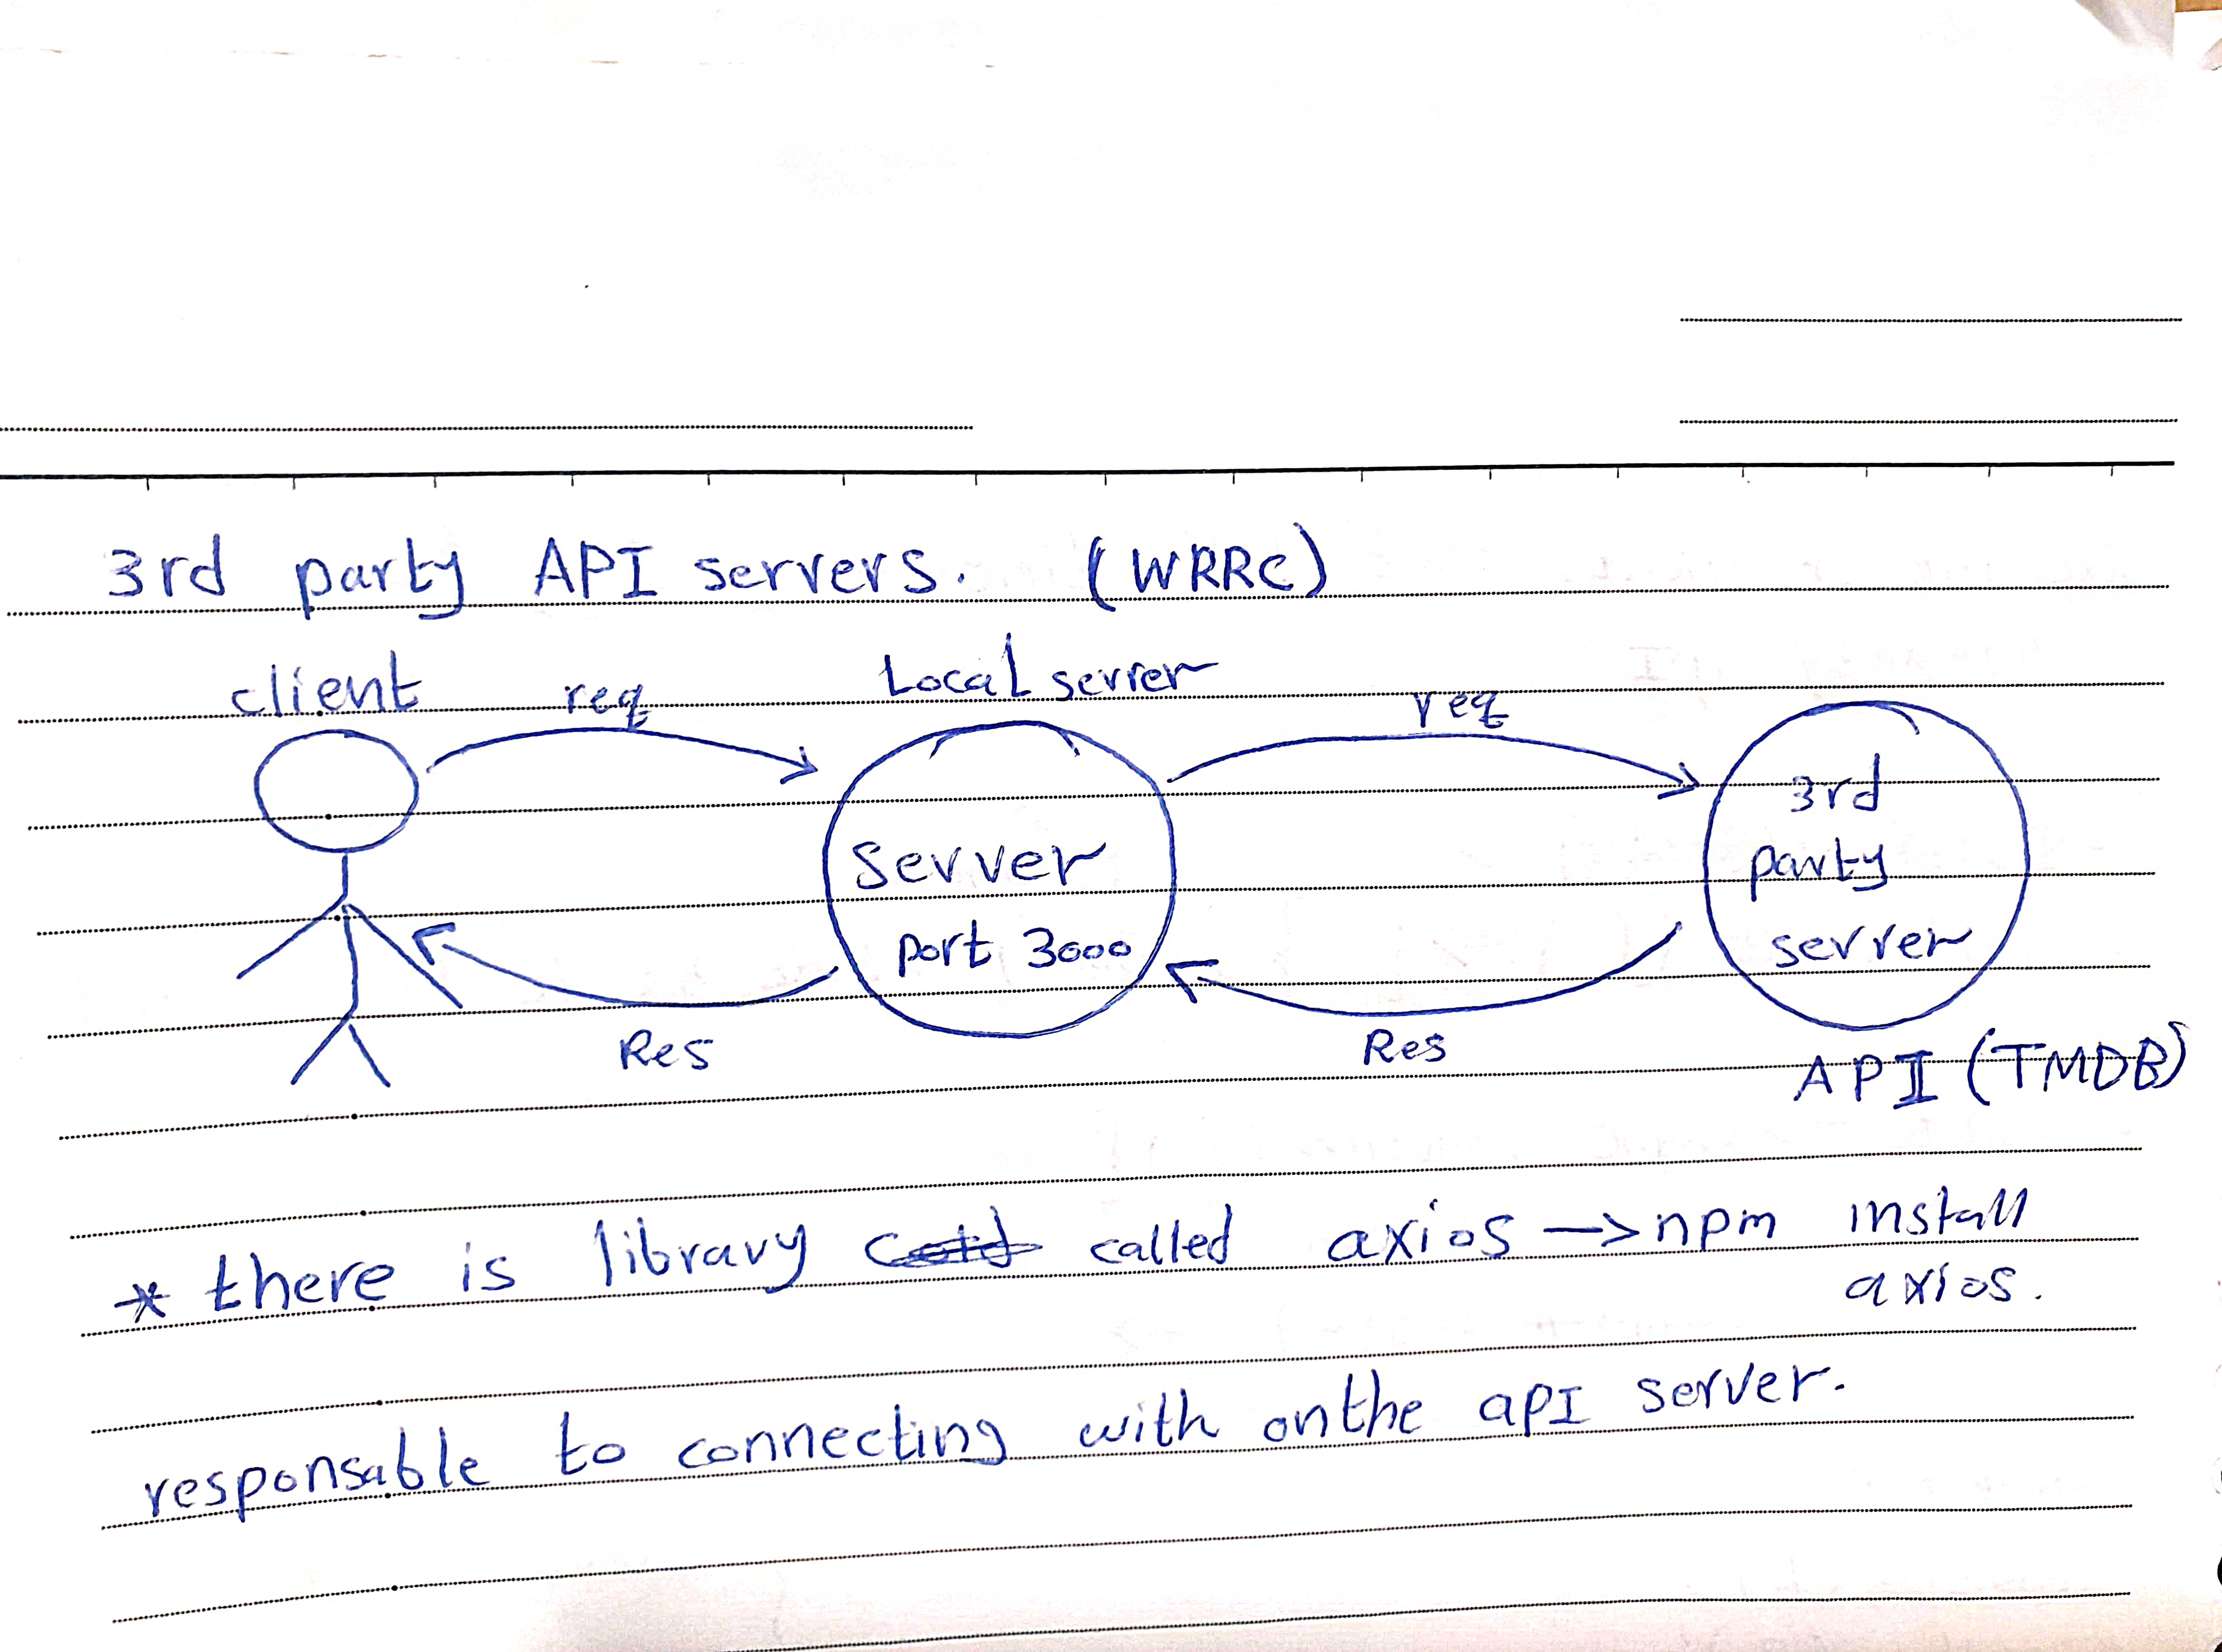 3rd party API servers. (WRRC)
client req Local server req
3rd
party
server
server
port 3000
Res Res
API (TMDB)
* there is library called axios → npm install
axios.
responsable to connecting with on the apI server.